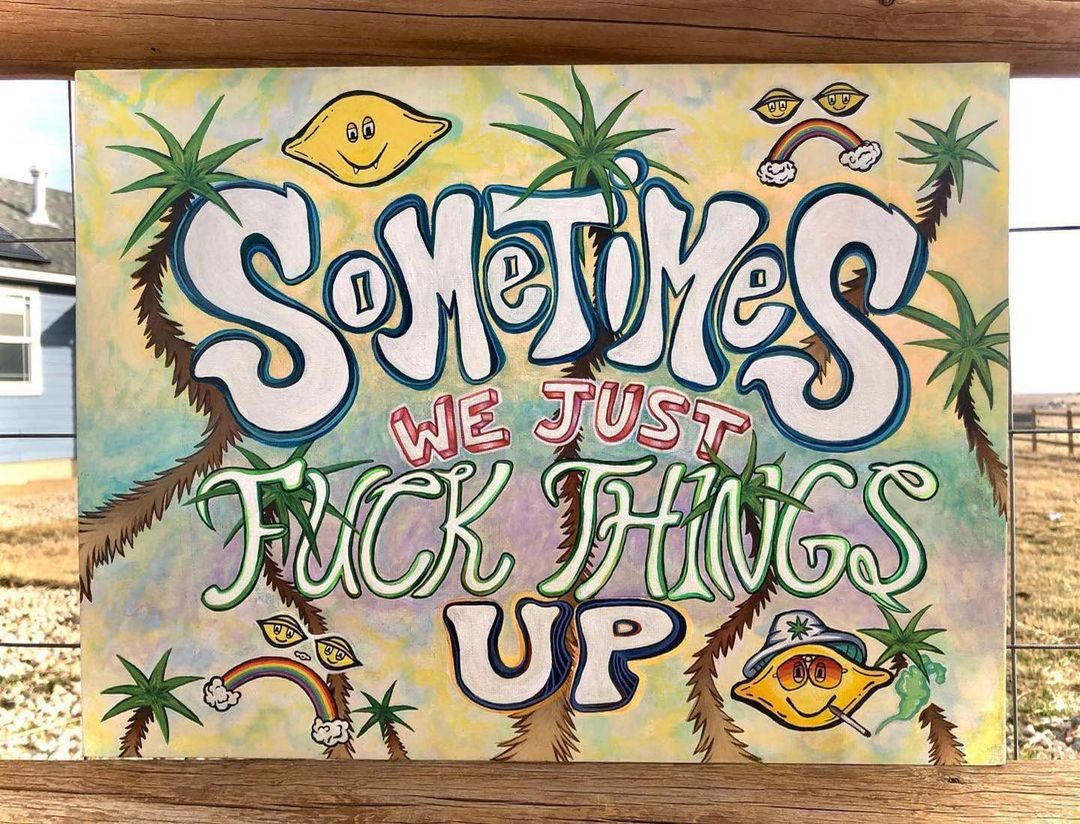 SOMETIMES
WE JUST
FUCK THINGS
UP